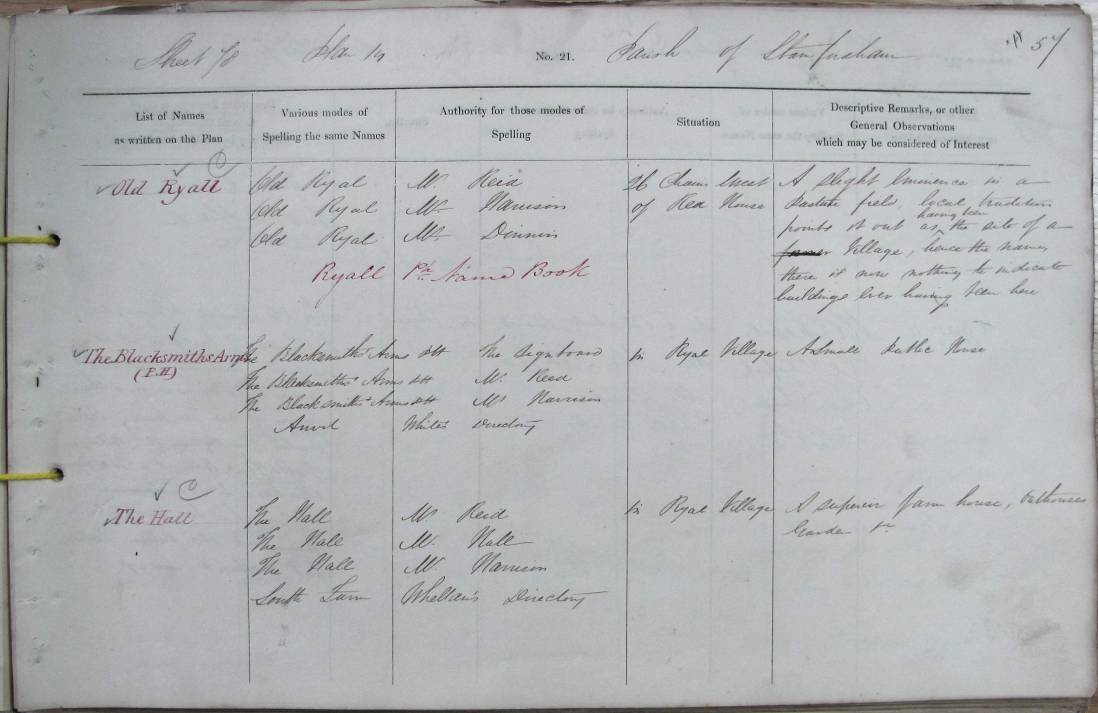 Sheet 78 Plan 14 No. 21. Parish of Stamfordham 57
List of Names
as written on the Plan
Various modes of
Spelling the same Names
Authority for those modes of
Spelling
Situation
Descriptive Remarks, or other
General Observations
which may be considered of Interest
Old Ryall
Old Ryal
Old Ryal
Old Ryal
Ryall
Mr. Reid
Mr. Harrison
Mr. Dinnin
Ph. Name Book
26 Chains West
of Red House
A slight Eminence in a
Pasture field, local tradition
having been
points it out as the site of a
former Village, hence the name,
there is now nothing to indicate
buildings ever having been here
The Blacksmiths Arms
(P.H)
The Blacksmiths Arms P.H
The Blacksmiths' Arms P.H
The Blacksmiths' Arms P.H
Anvil
The Signboard
Mr. Reed
Mr. Harrison
White's Directory
In Ryal Village
A Small Public House
The Hall
The Hall
The Hall
The Hall
South Farm
Mr Reid
Mr. Hall
Mr Harrison
Whellan's Directory
In Ryal Village
A superior farm house, Outhouses
Garden &c